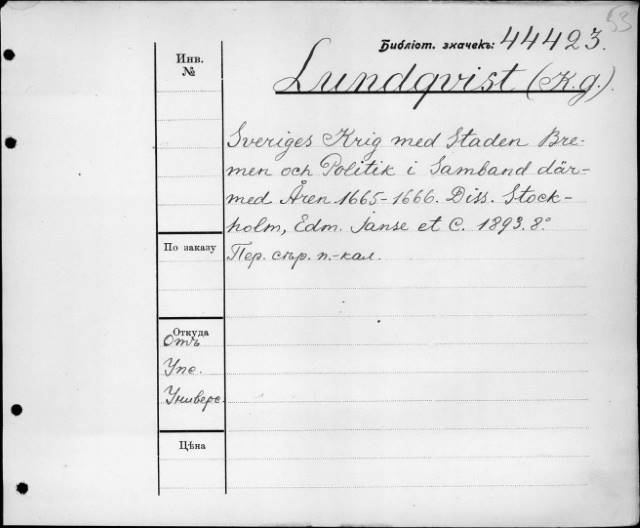 53
Библіот. значекъ: 44423.
Инв.
№
Lundqvist (K.g.).
Sveriges Krig med Staden Bre-
men och Politik i Samband där-
med Åren 1665-1666. Diss. Stock-
holm, Edm. Janse et C. 1893. 8º
По заказу
Пер. стр. п.-кал.
Откуда
Отъ
Упс.
Универс.
Цѣна